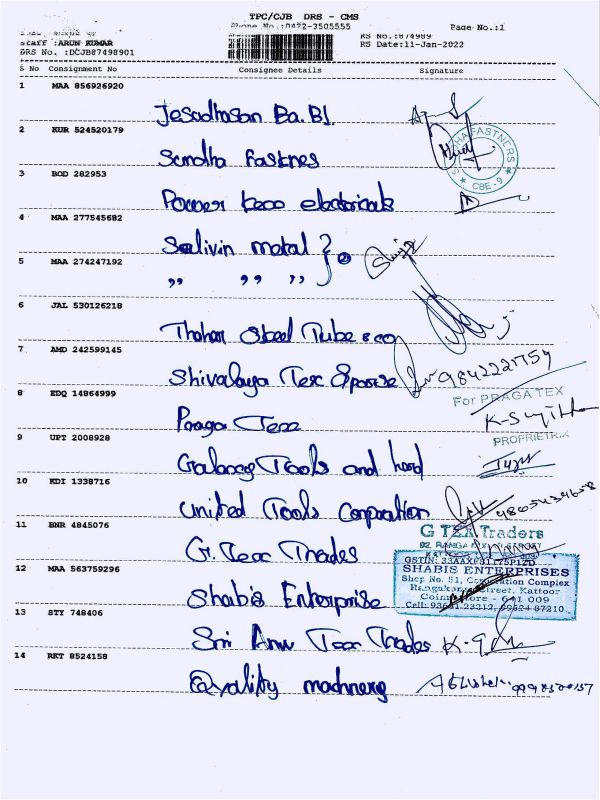 TPC/CJB DRS - CMS
Phone No.:0422-3505555
Page No.:1
Staff :ARUN KUMAR
RS No.:874989
DRS No. :DCJB87498901
RS Date:11-Jan-2022
S No Consignment No Consignee Details Signature
1 MAA 856926920
Jesudhasan Ba. Bl
2 KUR 524520179
Sandha Fastnes
FASTNERS
CBE-9
3 BOD 282953
Power electricals
4 MAA 277545682
Selivin metal
5 MAA 274247192
,, ,, ,,
6 JAL 530126218
Thahar Steel Tube & co
7 AMD 242599145
Shivalaya Tex Sparse
9842221754
8 EDQ 14864999
Praga Tex
For PRAGA TEX
K-Sujitha
PROPRIETRIX
9 UPT 2008928
Galaxy Tools and hard
10 KDI 1338716
United Tools Corporation
11 BNR 4845076
G. Tex Trades
G TEX Traders
12 MAA 563759296
Shabis Enterprise
SHABIS ENTERPRISES
Shop No. 51, Corporation Complex
Rangakonar Street, Kattoor
Coimbatore - 641 009
13 STY 748406
Sri Anu Tex Trades
14 RKT 8524158
Quality machnery